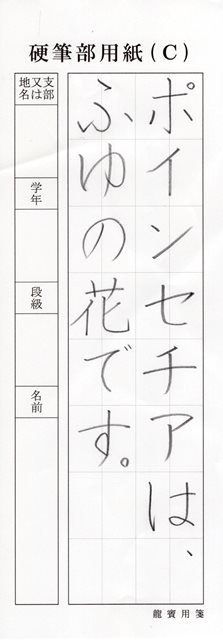 硬筆部用紙(C)
ポインセチアは、
ふゆの花です。
支部又は地名
学年
段級
名前
龍賓用箋